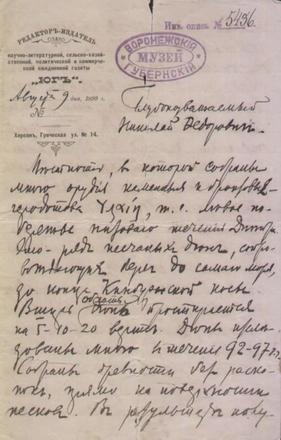 РЕДАКТОРЪ-ИЗДАТЕЛЬ
научно-литературной, сельско-хозяй-
ственной, политической и коммерче-
ской ежедневной газеты
"ЮГЪ"
Августа 9 дня, 1899 г.
№
Херсонъ, Греческая ул. № 14.
Инв. опись. № 5496.
ВОРОНЕЖСКІЙ
МУЗЕЙ
ГУБЕРНСКІЙ
Глубокоуважаемый
Николай Ѳедоровичъ.
Мѣстность, в которой собраны
много орудій каменныя и бронзовыя
т. е. лѣвое по-
бережье теченія Днѣпра.
рядъ песчаныхъ дюнъ,
берег до самаго моря,
до конца Кинбурнской косы.
область дюнъ простирается
на 5-10-20 верстъ. Дюны
много в теченіе 92-97 гг.
Собраны древности без раско-
покъ, прямо на поверхности
песковъ. Въ результатѣ